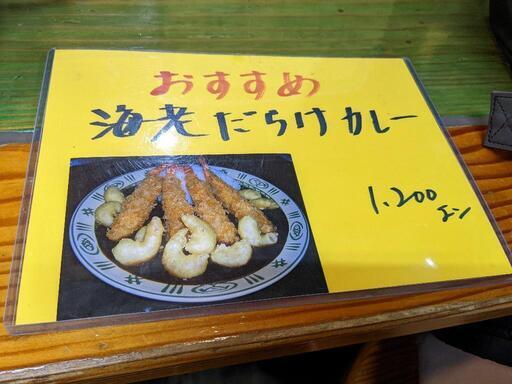 おすすめ
海老だらけカレー
1,200エン